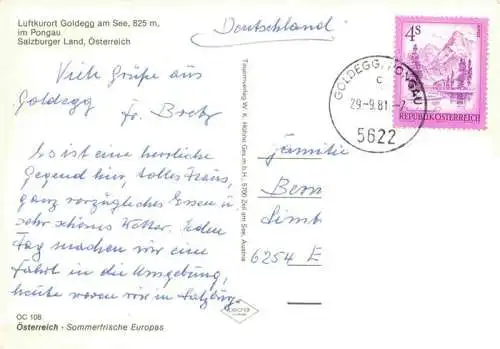 Luftkurort Goldegg am See, 825 m,
im Pongau
Salzburger Land, Österreich
Deutschland
Viele Grüße aus
Goldegg
Es ist eine herrliche
Gegend hier, tolles Haus,
ganz vorzügliches Essen u.
sehr schönes Wetter. Jeden
Tag machen wir eine
Fahrt in die Umgebung,
heute waren wir in Salzburg.
OC 108
Österreich - Sommerfrische Europas
Tauernverlag W. K. Hühne Ges.m.b.H., 5700 Zell am See, Austria
4S
REPUBLIK ÖSTERREICH
GOLDEGG, PONGAU
c
29.-9.81
5622
Familie
Bern
Limb
6254 E